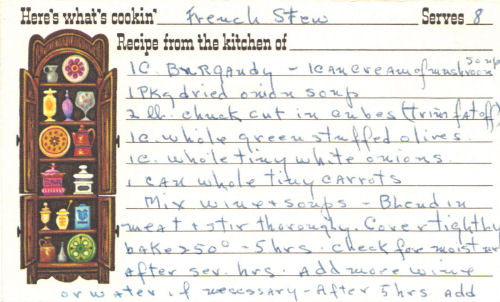 Here's what's cookin' French Stew Serves 8
Recipe from the kitchen of
1C. Burgandy - 1 can cream of mushroom soup
1 Pkg dried onion soup
2 lb. chuck cut in cubes (trim fat off)
1C. whole green stuffed olives
1C. whole tiny white onions.
1 can whole tiny carrots
Mix wine + soups - Blend in
meat + stir thoroughly. Cover tightly
bake 250° - 5 hrs. Check for moisture
after sev. hrs. Add more wine
or water if necessary - After 5 hrs add